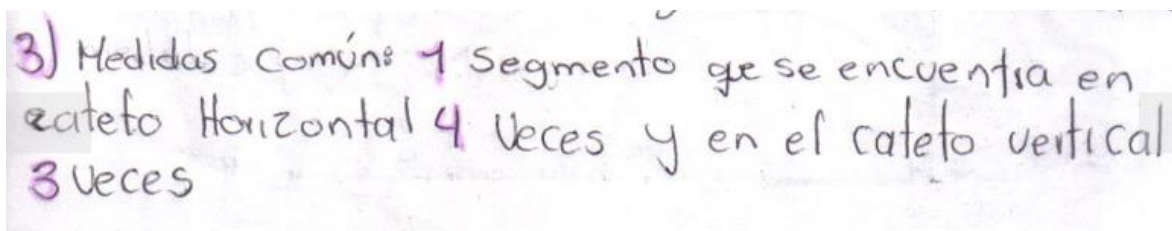 3) Medidas Común: 1 Segmento qe se encuentra en
cateto Horizontal 4 Veces y en el cateto vertical
3 veces